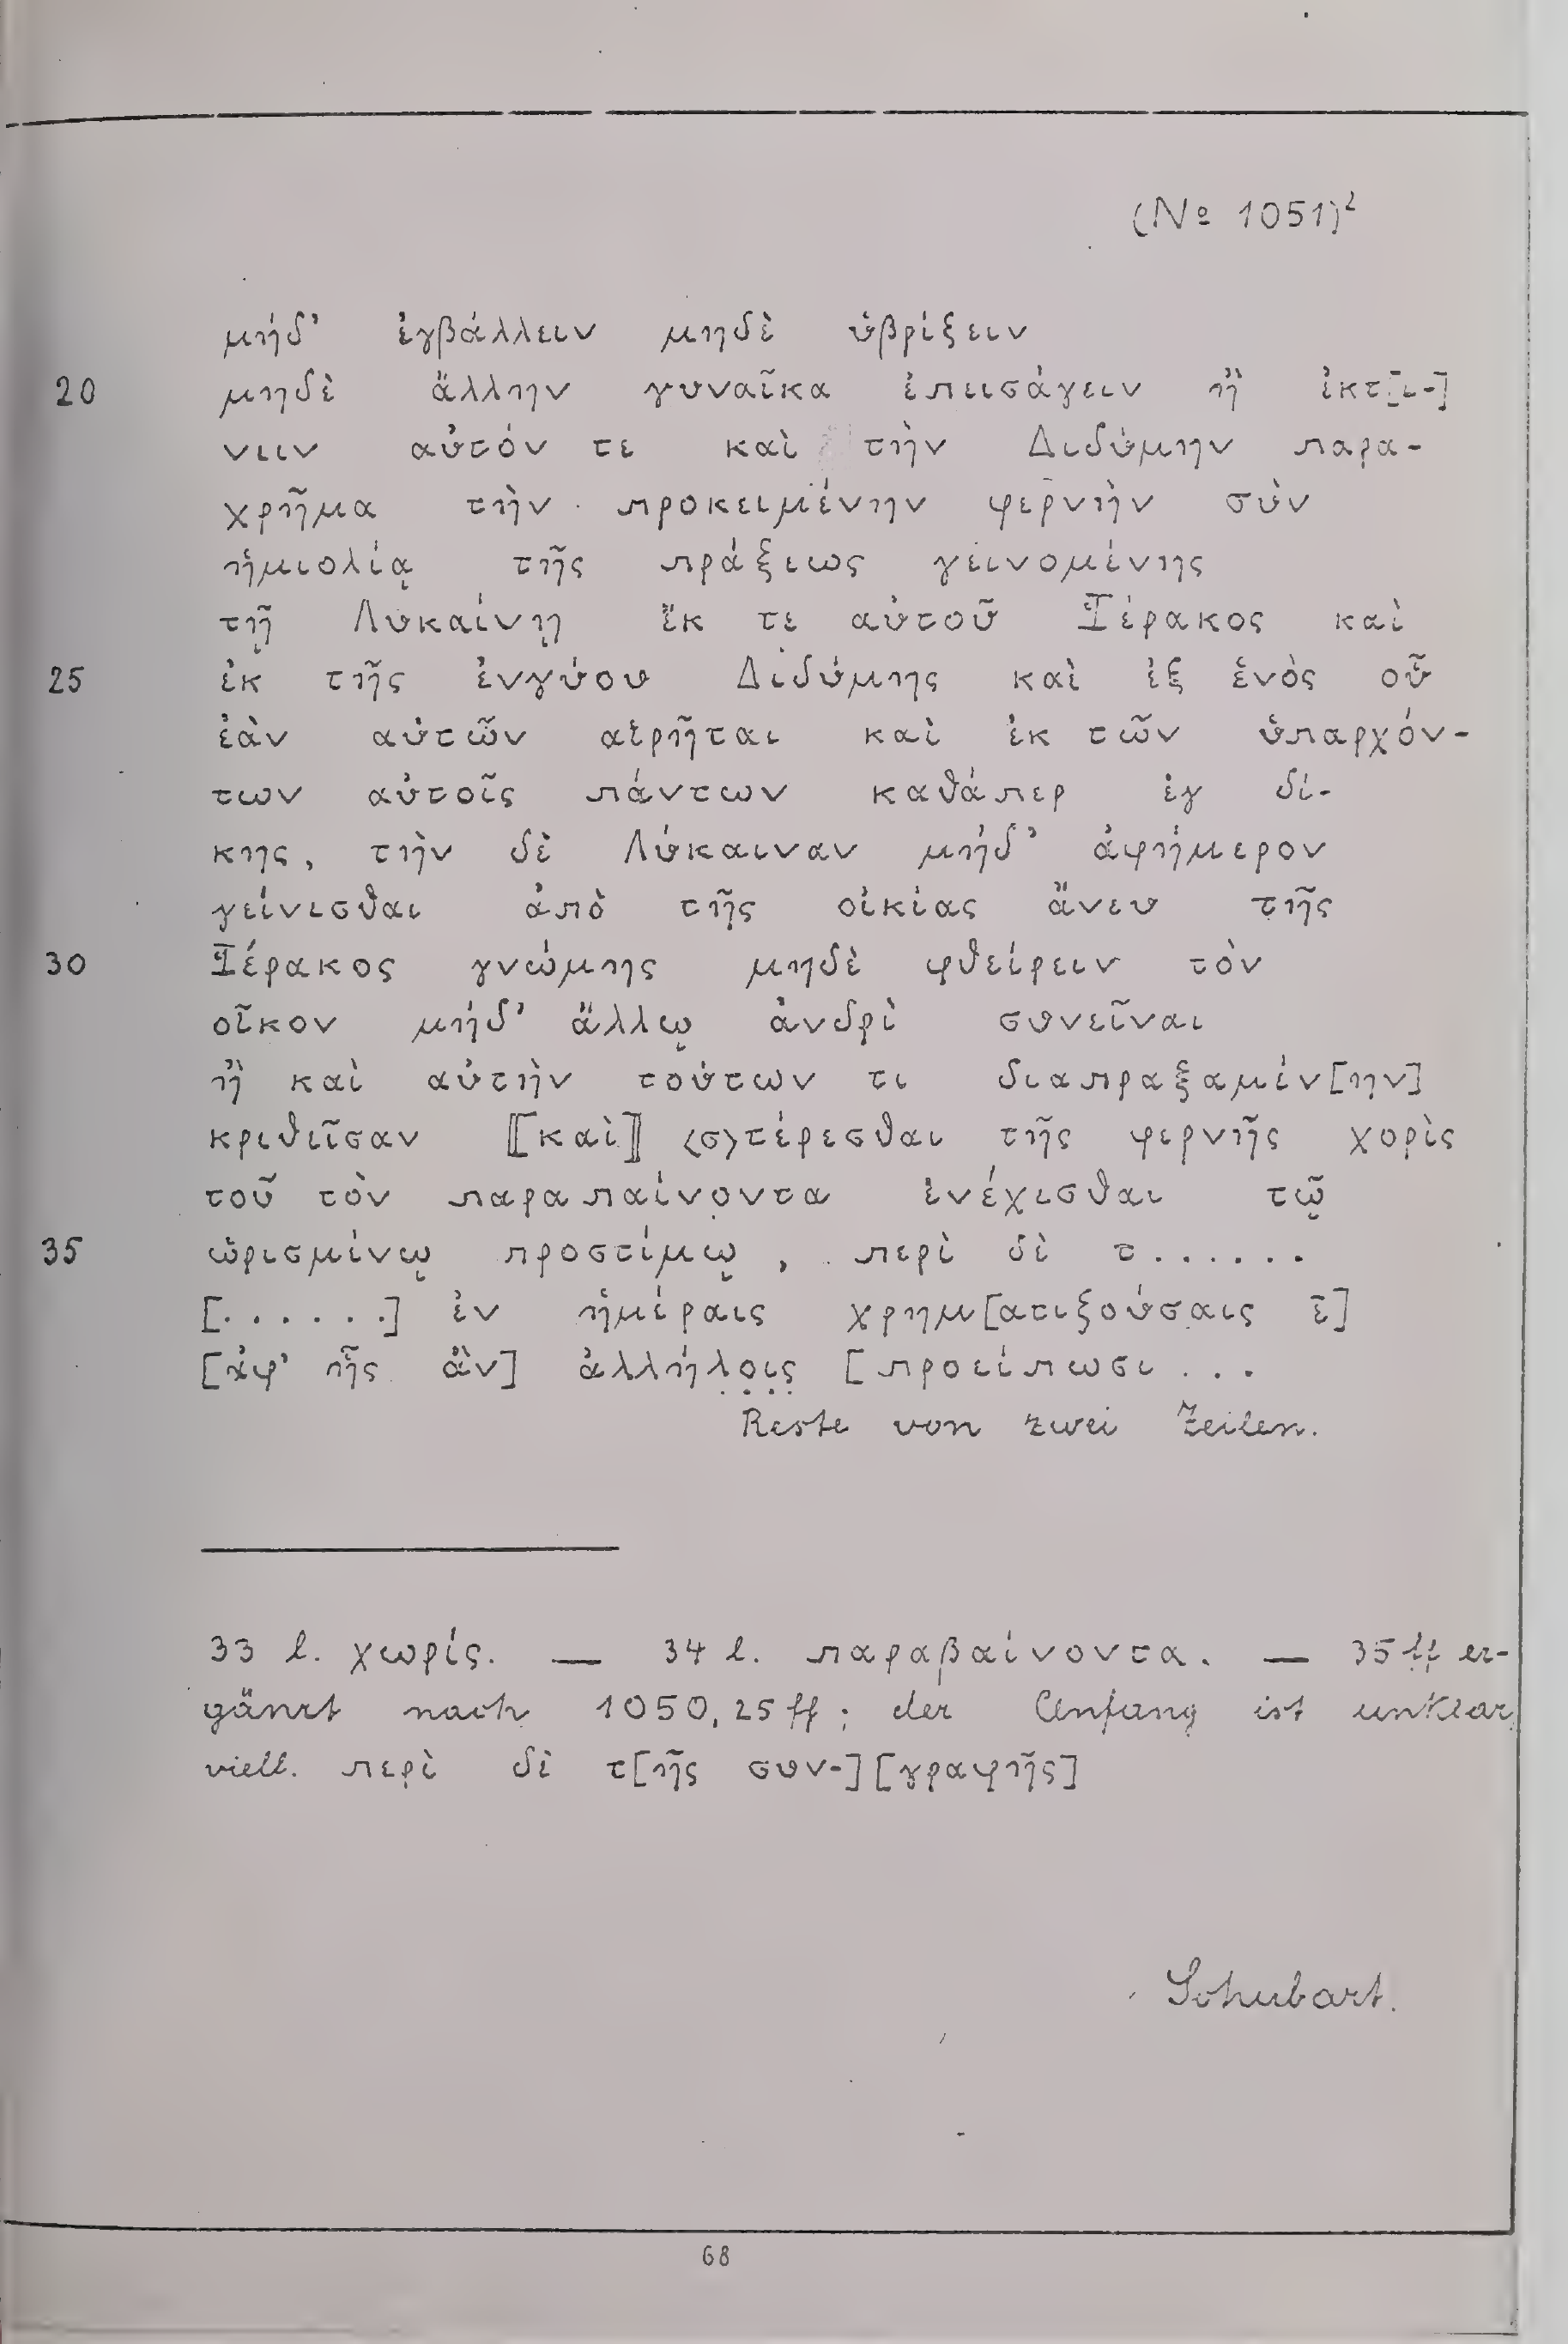 (№ 1051)²
μήδ' ἐγβάλλειν μηδὲ ὑβρίζειν
20 μηδὲ ἄλλην γυναῖκα ἐπεισάγειν ἢ ἐκτ[ι-]
νειν αὐτόν τε καὶ τὴν Διδύμην παρα-
χρῆμα τὴν προκειμένην φερνὴν σὺν
ἡμιολίᾳ τῆς πράξεως γεινομένης
τῇ Λυκαίνῃ ἔκ τε αὐτοῦ Ἱέρακος καὶ
25 ἐκ τῆς ἐνγύου Διδύμης καὶ ἐξ ἑνὸς οὗ
ἐὰν αὐτῶν αἱρῆται καὶ ἐκ τῶν ὑπαρχόν-
των αὐτοῖς πάντων καθάπερ ἐγ δί-
κης, τὴν δὲ Λύκαιναν μήδ' ἀφήμερον
γείνεσθαι ἀπὸ τῆς οἰκίας ἄνευ τῆς
30 Ἱέρακος γνώμης μηδὲ φθείρειν τὸν
οἶκον μήδ' ἄλλῳ ἀνδρὶ συνεῖναι
ἢ καὶ αὐτὴν τούτων τι διαπραξαμέν[ην]
κριθεῖσαν ⟦καὶ⟧ ⟨σ⟩τέρεσθαι τῆς φερνῆς χορὶς
τοῦ τὸν παραπαίνοντα ἐνέχεσθαι τῷ
35 ὡρισμένῳ προστίμῳ, περὶ δὲ τ......
[......] ἐν ἡμέραις χρημ[ατιζούσαις ε̄]
[ἀφ' ἧς ἂν] ἀλλήλο̣ι̣ς̣ [προείπωσι...
Reste von zwei Zeilen.
33 l. χωρίς. — 34 l. παραβαίνοντα. — 35 ff er-
gänzt nach 1050, 25 ff; der Anfang ist unklar
viell. περὶ δὲ τ[ῆς συν-][γραφῆς]
Schubart.
68